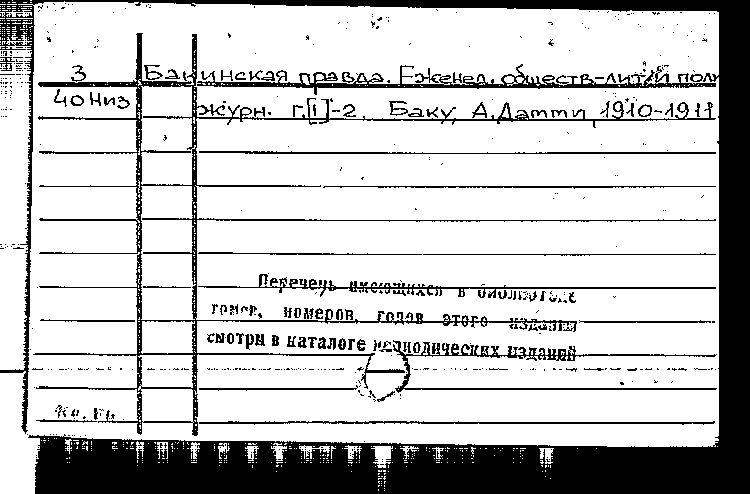 3 Бакинская правда. Еженед. обществ-лит. и поли
40 Низ журн. г. [1]-2. Баку, А. Датти, 1910-1911
Перечень имеющихся в библиотеке
томов, номеров, годов этого издания
смотри в каталоге периодических изданий